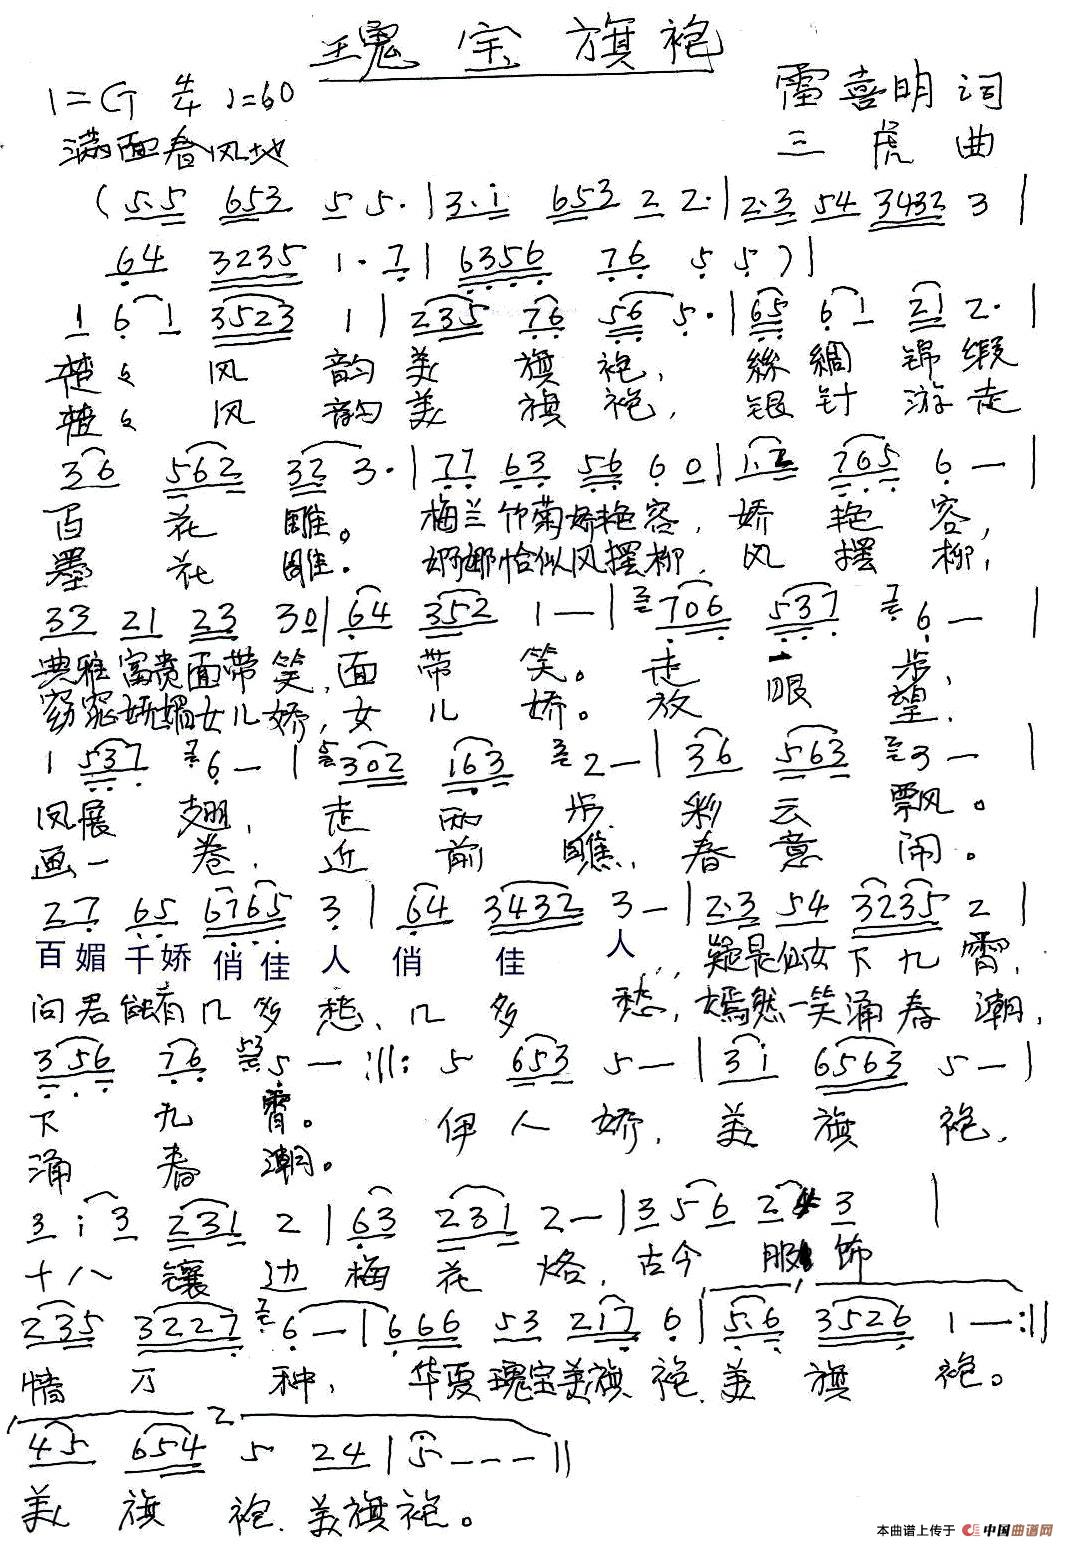 瑰宝旗袍
1=G 4/4 ♩=60
雷喜明 词
满面春风地
三虎 曲
(5·5 653 5 5·|3·i 653 2 2·|2·3 54 3432 3|
64 3235 1·7|6356 76 5 5)|
1 6 1 3523 1|235 76 56 5·|65 61 21 2·|
楚々风韵美旗袍,絲綢锦缎
楚々风韵美旗袍,银针游走
36 562 32 3·|77 63 56 60|1·2 765 6—|
百花雕。梅兰竹菊娇艳容,娇艳容,
墨花雕。婀娜恰似风摆柳,风摆柳,
33 21 23 30|64 352 1—|706 537 6—|
典雅富贵面带笑,面带笑。走一步,
窈窕妩媚女儿娇,女儿娇。放眼望,
1 537 6—|302 163 2—|36 563 3—|
凤展翅,走两步,彩云飘。
画一卷,近前瞧,春意闹。
27 65 6765 3|64 3432 3—|2·3 54 3235 2|
百媚千娇俏佳人俏佳人,疑是仙女下九霄,
问君能有几多愁、几多愁,嫣然一笑涌春潮,
356 76 5—:||: 5 653 5—|3i 6563 5—|
下九霄。伊人娇,美旗袍,
涌春潮。
3 i3 231 2|63 231 2—|3 56 2 3|
十八镶边梅花烙,古今服饰
235 3227 6—|666 53 217 6|5·6 3526 1—:||
情万种,华夏瑰宝美旗袍,美旗袍。
2
45 654 5 24|5———||
美旗袍、美旗袍。
本曲谱上传于 中国曲谱网